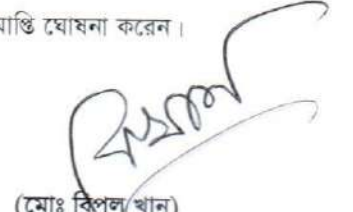 াপ্তি ঘোষনা করেন।
(মোঃ বিপল খান)